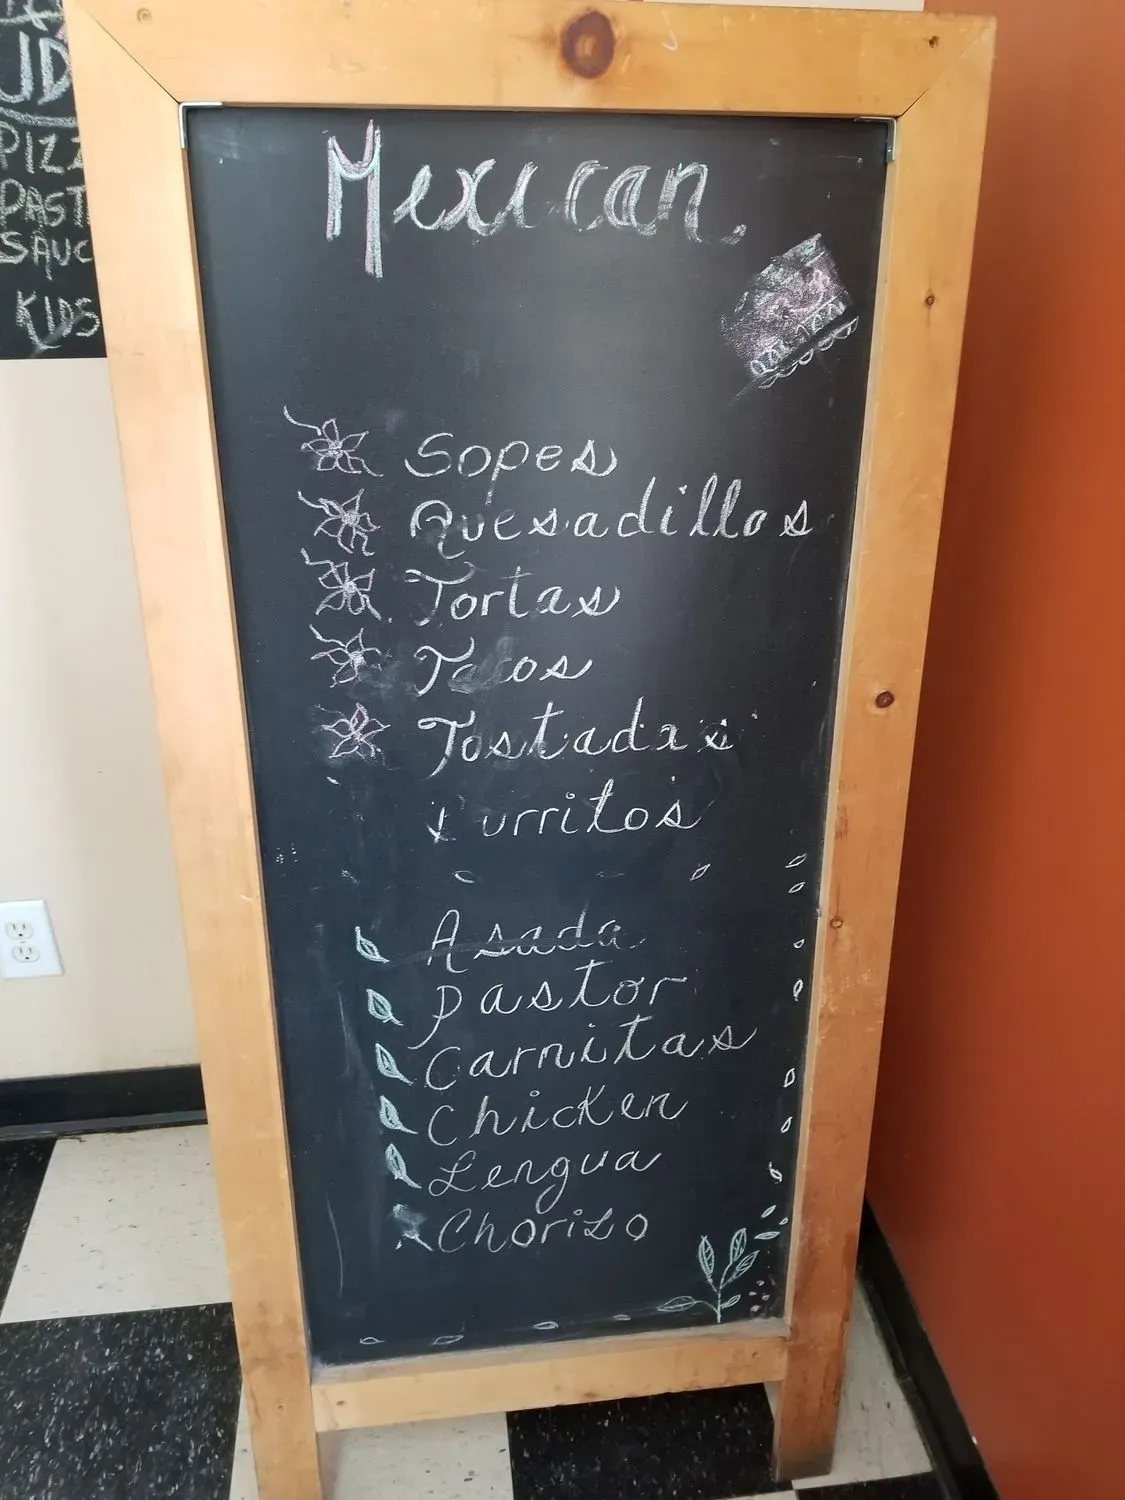 JD
PIZZ
PAST
SAUC
KIDS
Mexican
Sopes
Quesadillas
Tortas
Tacos
Tostadas
urritos
Asada
Pastor
Carnitas
Chicken
Lengua
Chorizo